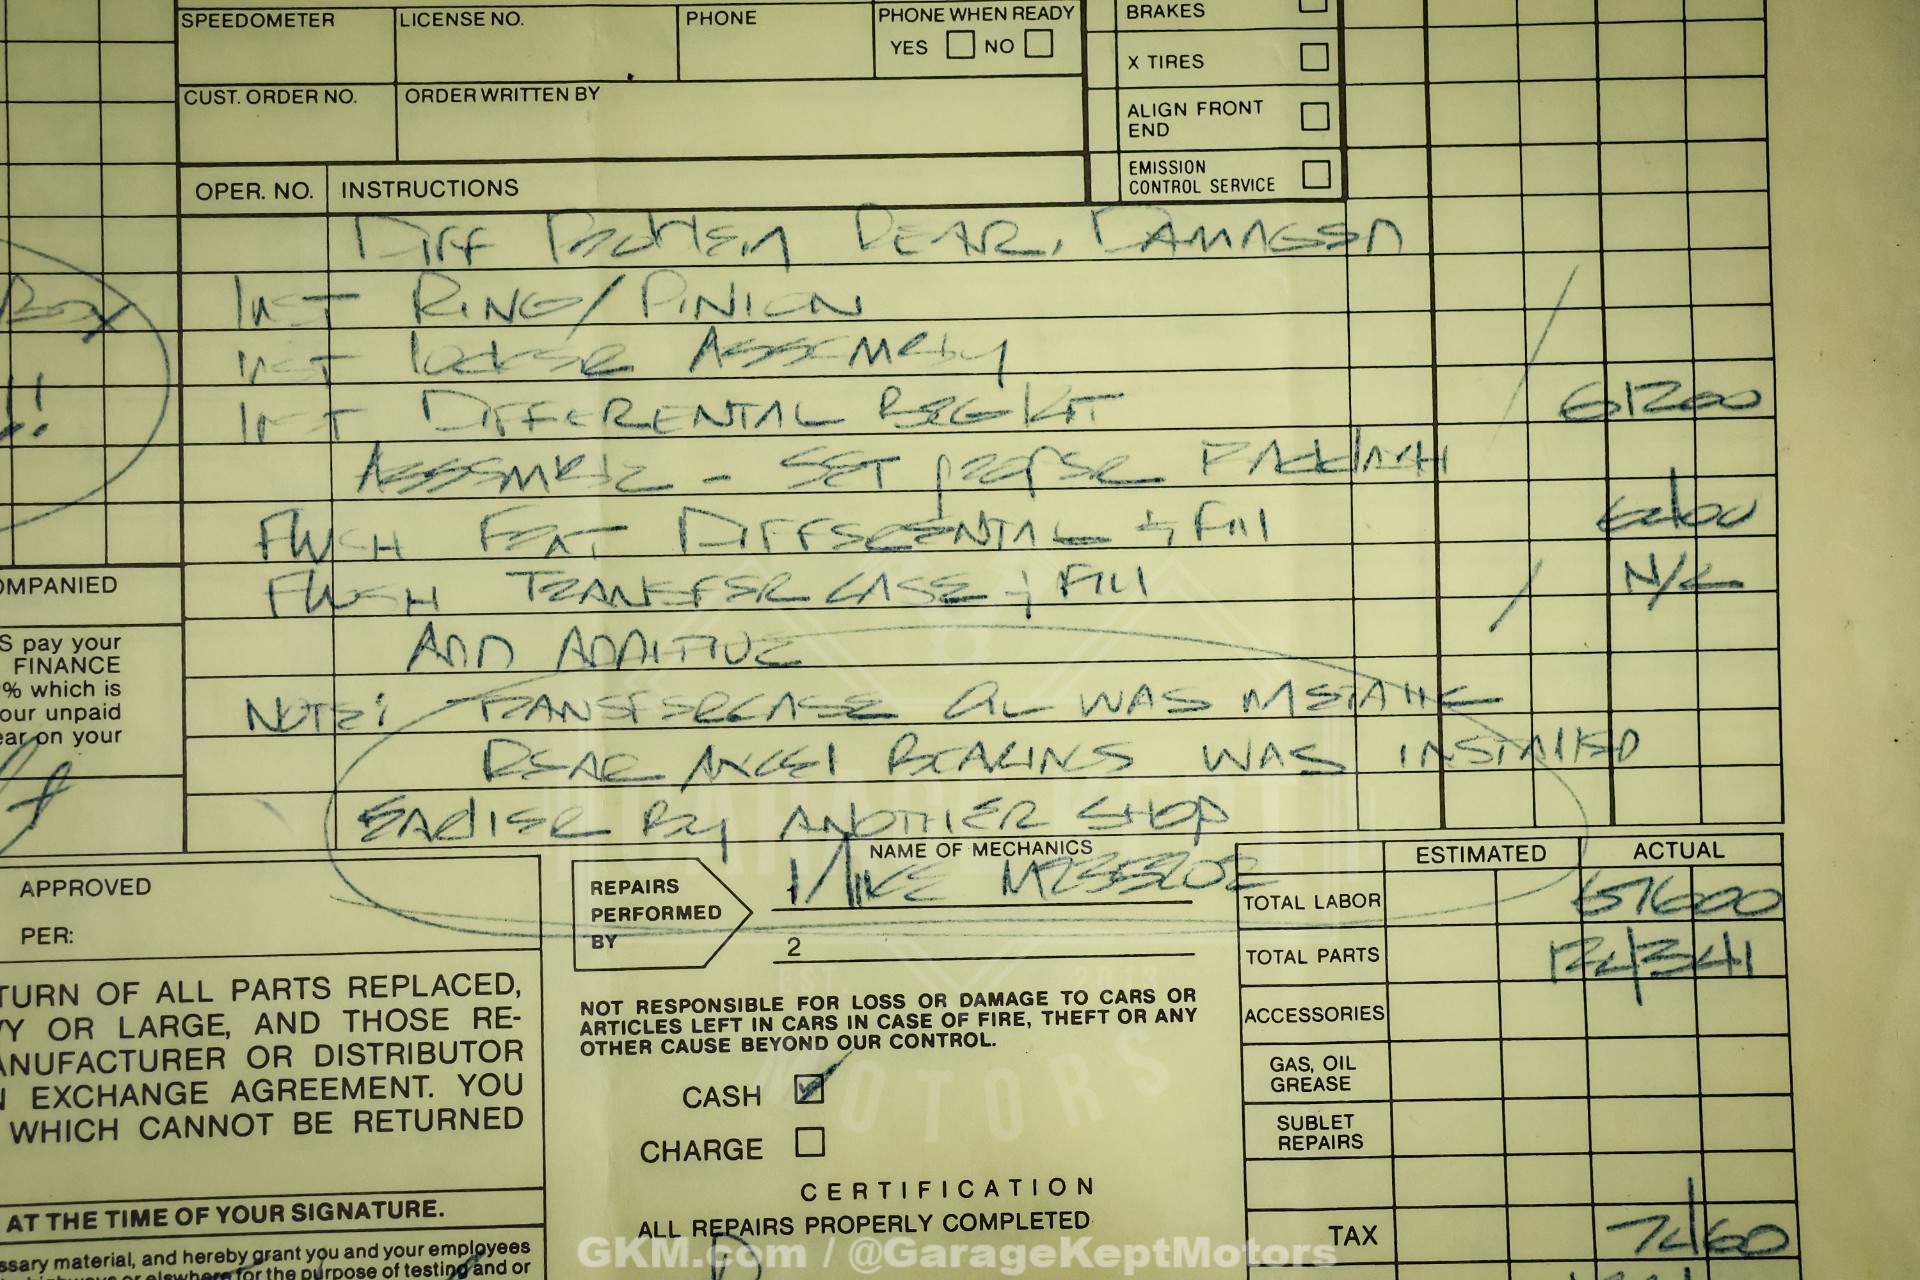 SPEEDOMETER
LICENSE NO.
PHONE
PHONE WHEN READY
YES NO
BRAKES
X TIRES
CUST. ORDER NO.
ORDER WRITTEN BY
ALIGN FRONT
END
EMISSION
CONTROL SERVICE
OPER. NO.
INSTRUCTIONS
DIFF PROBLEM REAR, DAMAGED
INST RING/PINION
INST locker ASSEMBLY
INST DIFFERENTAL BRG KIT 61200
ASSEMBLE - SET
FLUSH FRONT DIFFERENTIAL & FILL
FLUSH TRANSFER CASE & FILL N/C
ADD ADDITIVE
NOTE: TRANSFERCASE OIL WAS METALLIC
REAR BEARING WAS INSTALLED
EARLIER BY ANOTHER SHOP
BOX
!!
OMPANIED
S pay your
FINANCE
% which is
our unpaid
ear on your
APPROVED
PER:
TURN OF ALL PARTS REPLACED,
VY OR LARGE, AND THOSE RE-
ANUFACTURER OR DISTRIBUTOR
N EXCHANGE AGREEMENT. YOU
WHICH CANNOT BE RETURNED
AT THE TIME OF YOUR SIGNATURE.
ssary material, and hereby grant you and your employees
highways or elsewhere for the purpose of testing and or
REPAIRS
PERFORMED
BY
NAME OF MECHANICS
1 MIKE
2
NOT RESPONSIBLE FOR LOSS OR DAMAGE TO CARS OR
ARTICLES LEFT IN CARS IN CASE OF FIRE, THEFT OR ANY
OTHER CAUSE BEYOND OUR CONTROL.
CASH
CHARGE
CERTIFICATION
ALL REPAIRS PROPERLY COMPLETED
ESTIMATED ACTUAL
TOTAL LABOR 67600
TOTAL PARTS
ACCESSORIES
GAS, OIL
GREASE
SUBLET
REPAIRS
TAX 74 60
GARAGE KEPT
EST. 2013
MOTORS
GKM.com / @GarageKeptMotors